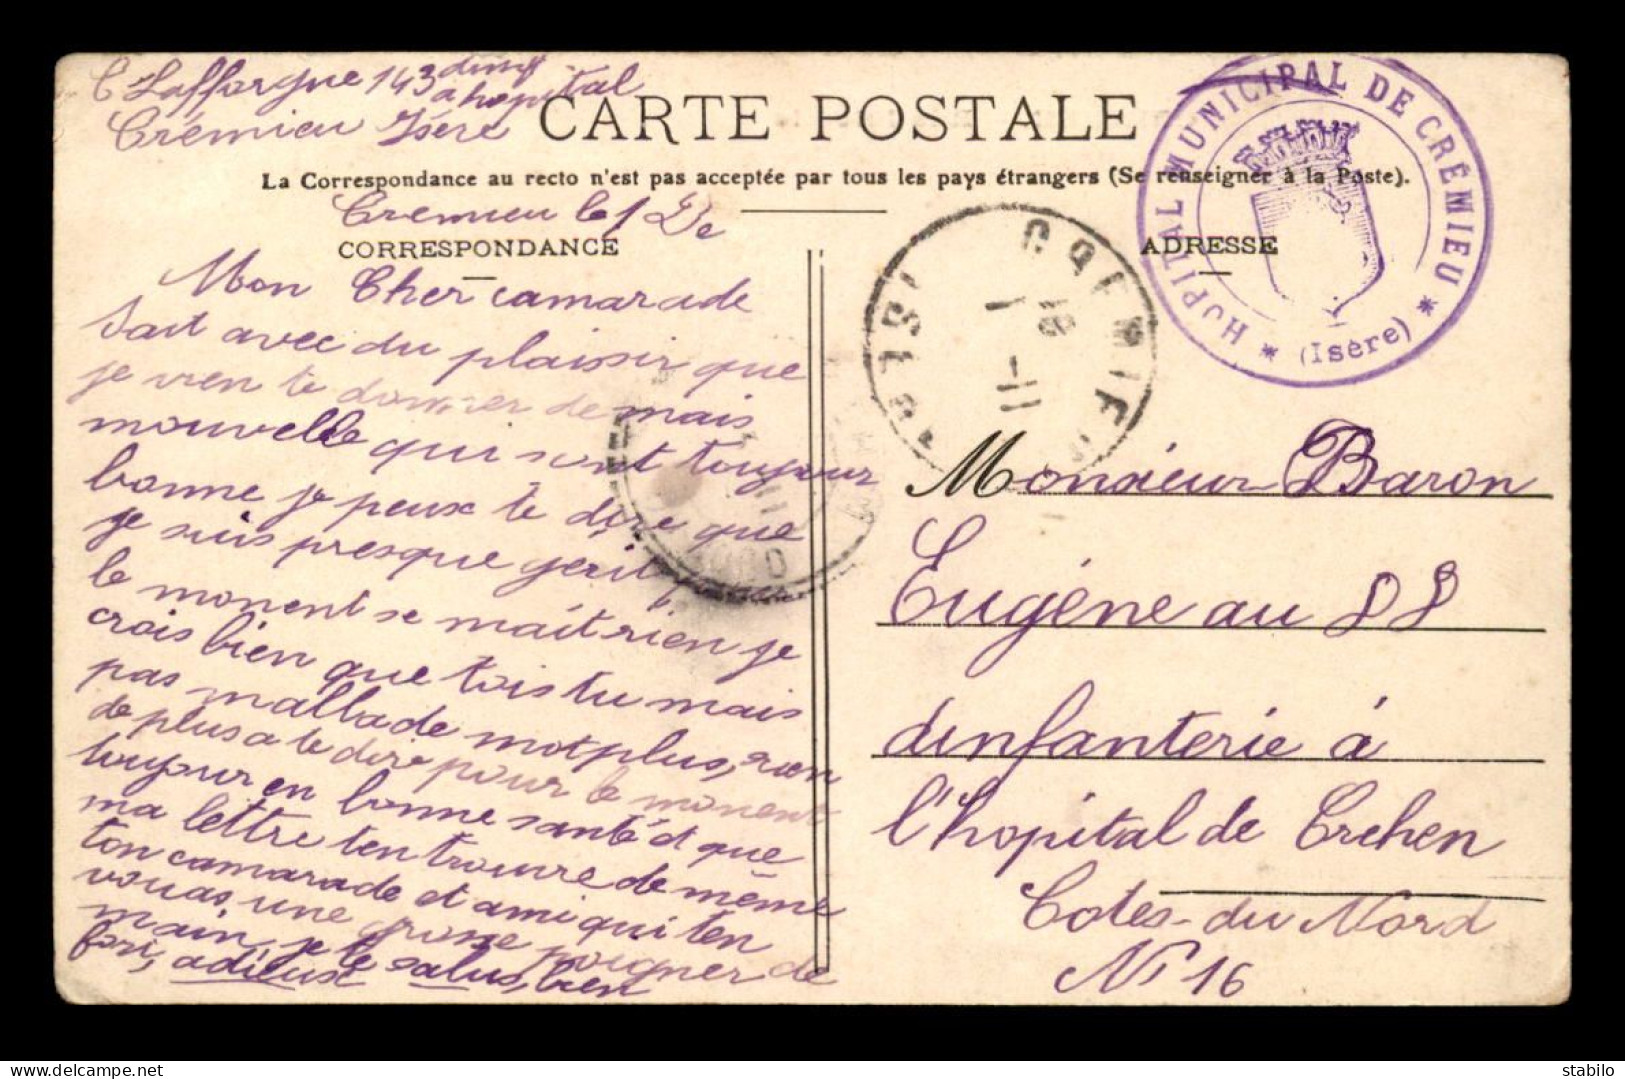 C Laffargue 143 dinf
a hopital
Crémieu Isère
CARTE POSTALE
La Correspondance au recto n'est pas acceptée par tous les pays étrangers (Se renseigner à la Poste).
Cremieu le 1 De
CORRESPONDANCE
Mon Cher camarade
Sait avec du plaissir que
je vien te donner de mais
nouvelle qui sont toujour
bonne je peux te dire que
je suis presque gerit
le monent se mait rien je
crois bien que tois tu mais
pas mallade not plus, rien
de plus a te dire pour le monent
toujour en bonne santé d que
ma lettre ten trouvre de même
ton camarade et ami qui ten
vouas une grosse poigner de
main, je te salus, bien
fari, adieuse
ADRESSE
HOPITAL MUNICIPAL DE CRÉMIEU
* (Isère) *
CREMIEU
ISERE
1 -11
18
Monsieur Baron
Eugéne au 88
dinfanterie á
l'hopital de Crehen
Cotes-du Nord
N° 16
delcampe.net
stabilo